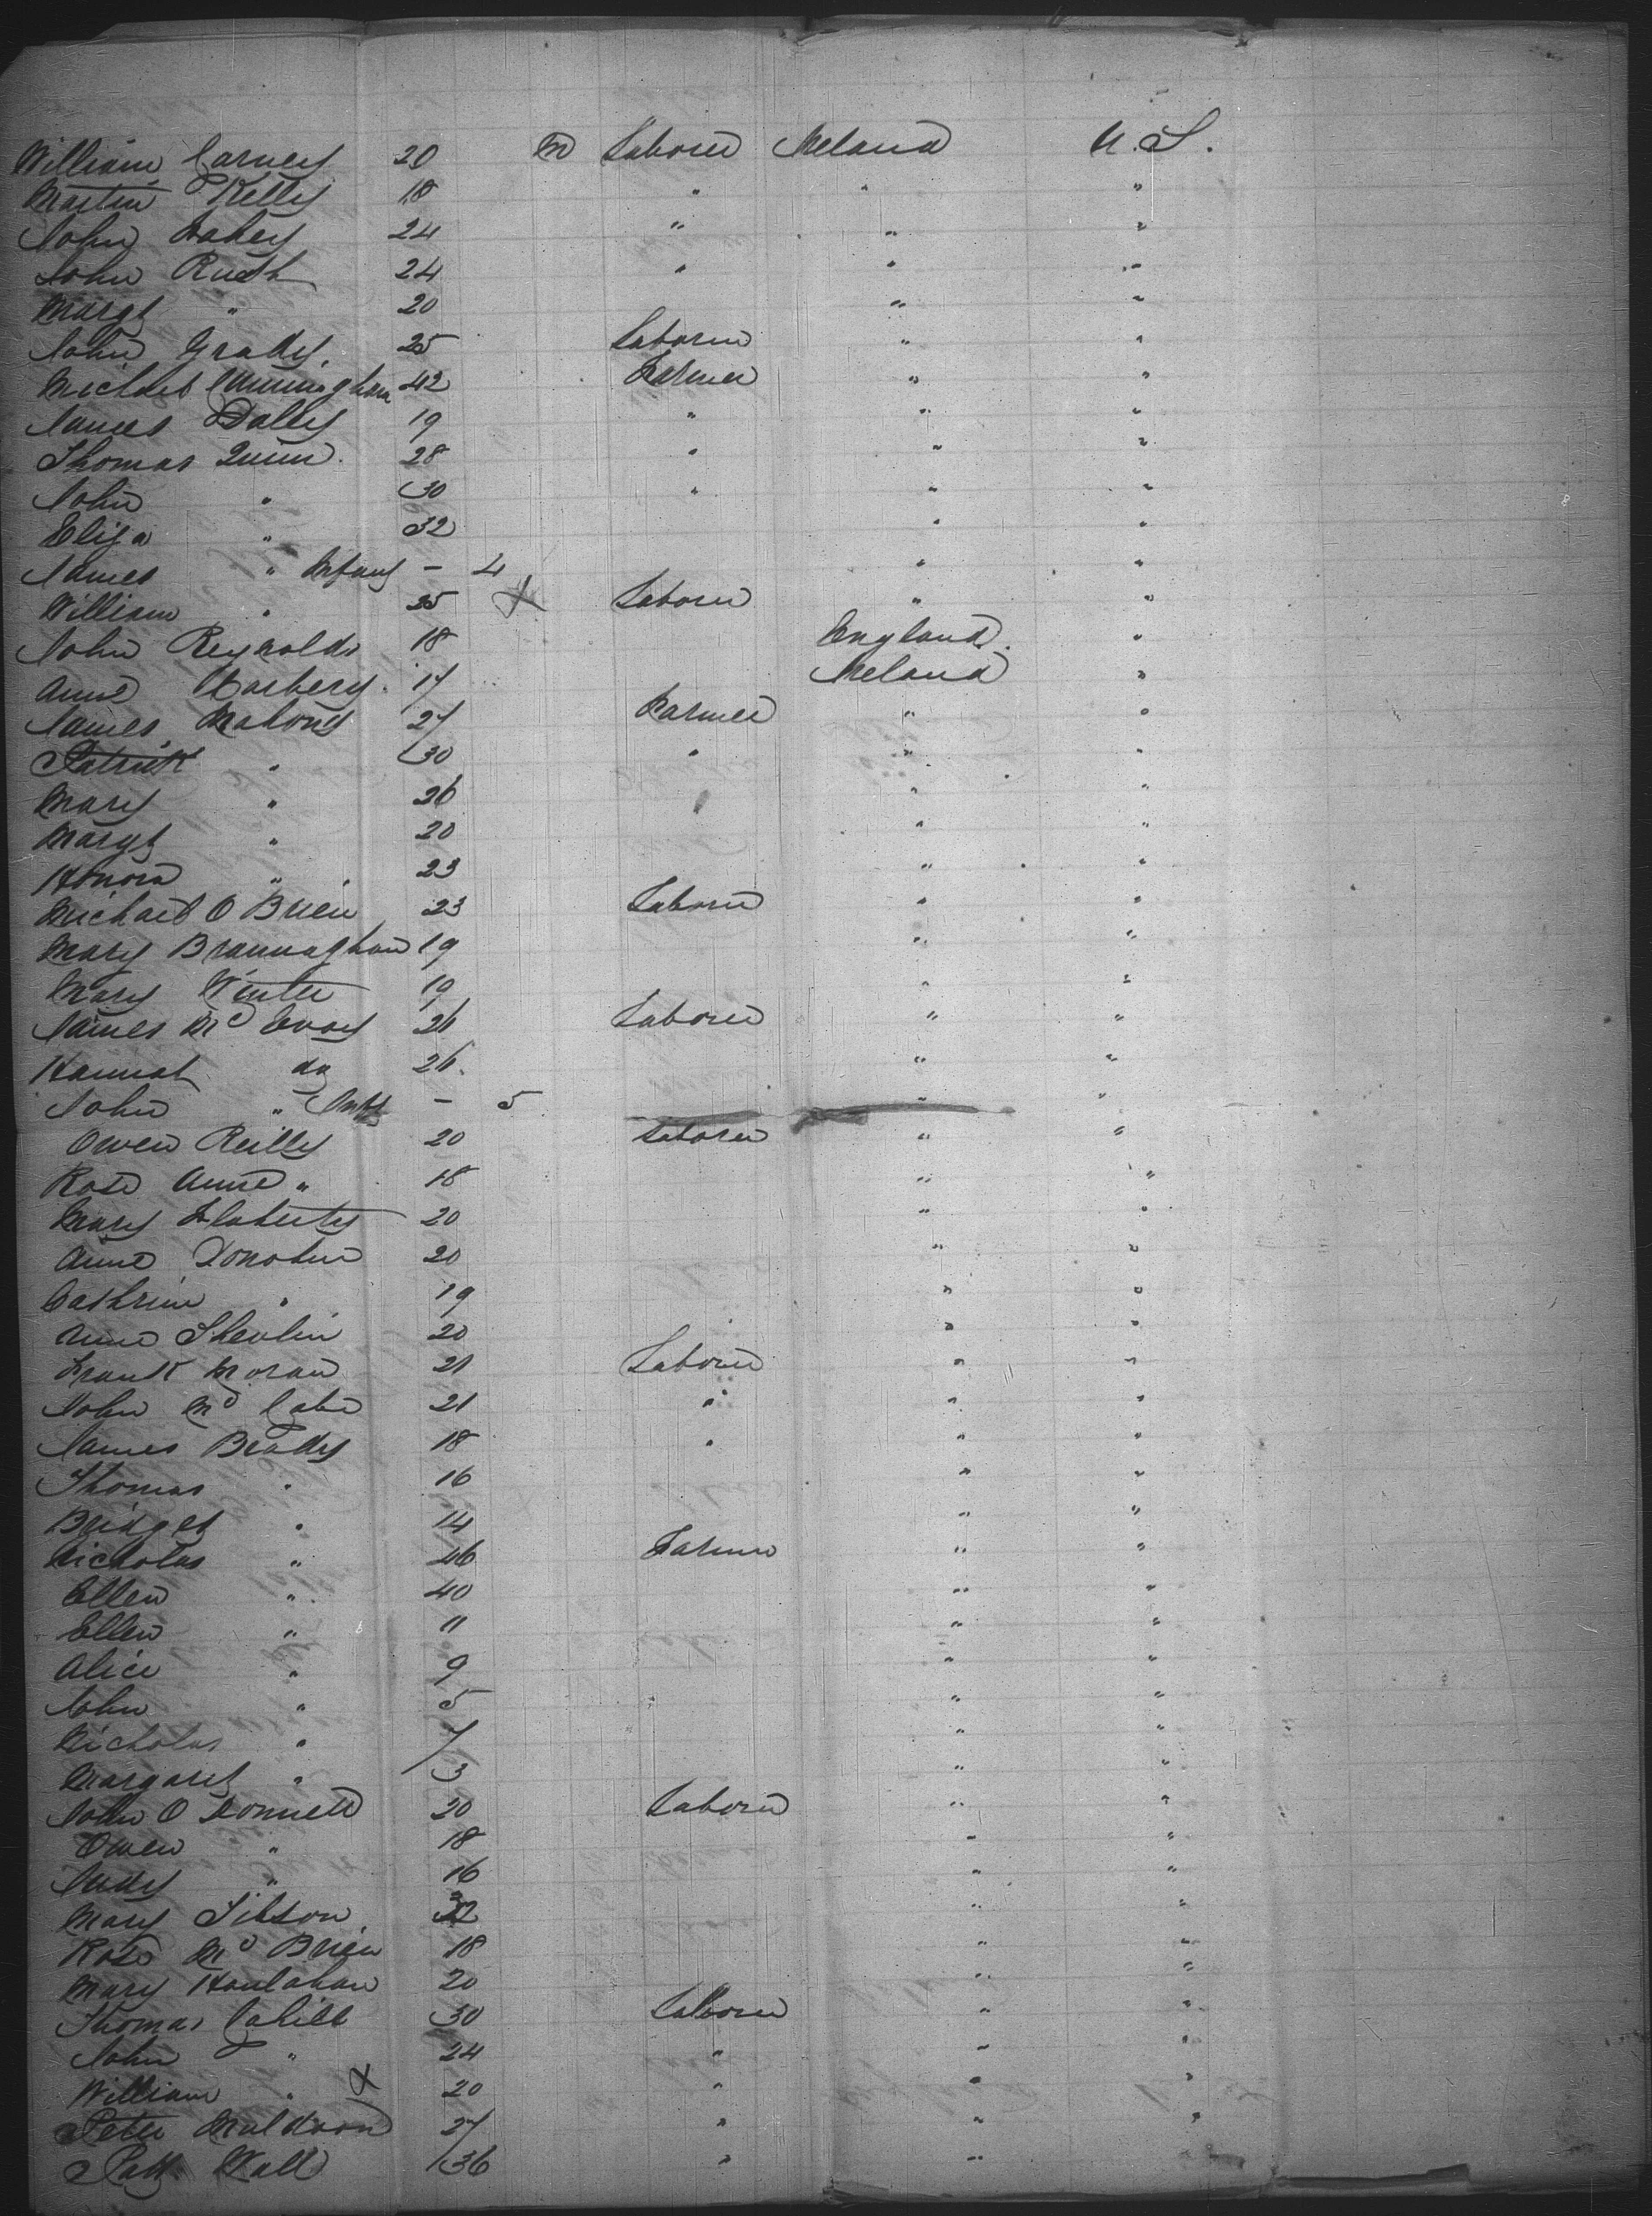 William Carney 20 m Laborer Ireland U.S.
Martin Kelly 18 " " "
John Fahey 24 " " "
John Rush 24 " " "
Margt " 20 " "
John Grady. 25 Laborer " "
Michael Cunningham 42 Farmer " "
James Dally 19 " " "
Thomas Quinn. 28 " " "
John " 30 " " "
Eliza " 32 " "
James " Infant - 4 " "
William " 25 X Laborer " "
John Reynolds 18 England. "
Anne Harbery. 17 Ireland "
James Mahony 27 Farmer " "
Patrick " 30 " " "
Mary " 26 " "
Margt " 20 " "
Honora " 23 " "
Michael O Brien 23 Laborer " "
Mary Brannaghan 19 " "
Mary Winter 19 " "
James Mc Evoy 26 Laborer " "
Hannah do 26. " "
John " Inft - 5 " "
Owen Reilly 20 Laborer " "
Rose Anne " 18 " "
Mary Flaherty 20 " "
Anne Donohue 20 " "
Cathrine " 19 " "
Anne Shevlin 20 " "
Frank Moran 21 Laborer " "
John Mc Cabe 21 " " "
James Brady 18 " " "
Thomas " 16 " "
Bridget " 14 " "
Nicholas " 46 Farmer " "
Ellen " 40 " "
Ellen " 11 " "
Alice " 9 " "
John " 5 " "
Nicholas " 7 " "
Margaret " 3 " "
John O Donnell 20 Laborer " "
Owen " 18 " "
Judy " 16 " "
Mary Gibson 32 " "
Rose Mc Brien 18 " "
Mary Houlahan 20 " "
Thomas Cahill 30 Laborer " "
John " 24 " " "
William " X 20 " " "
Peter Muldoon 27 " " "
Patt Wall 36 " "